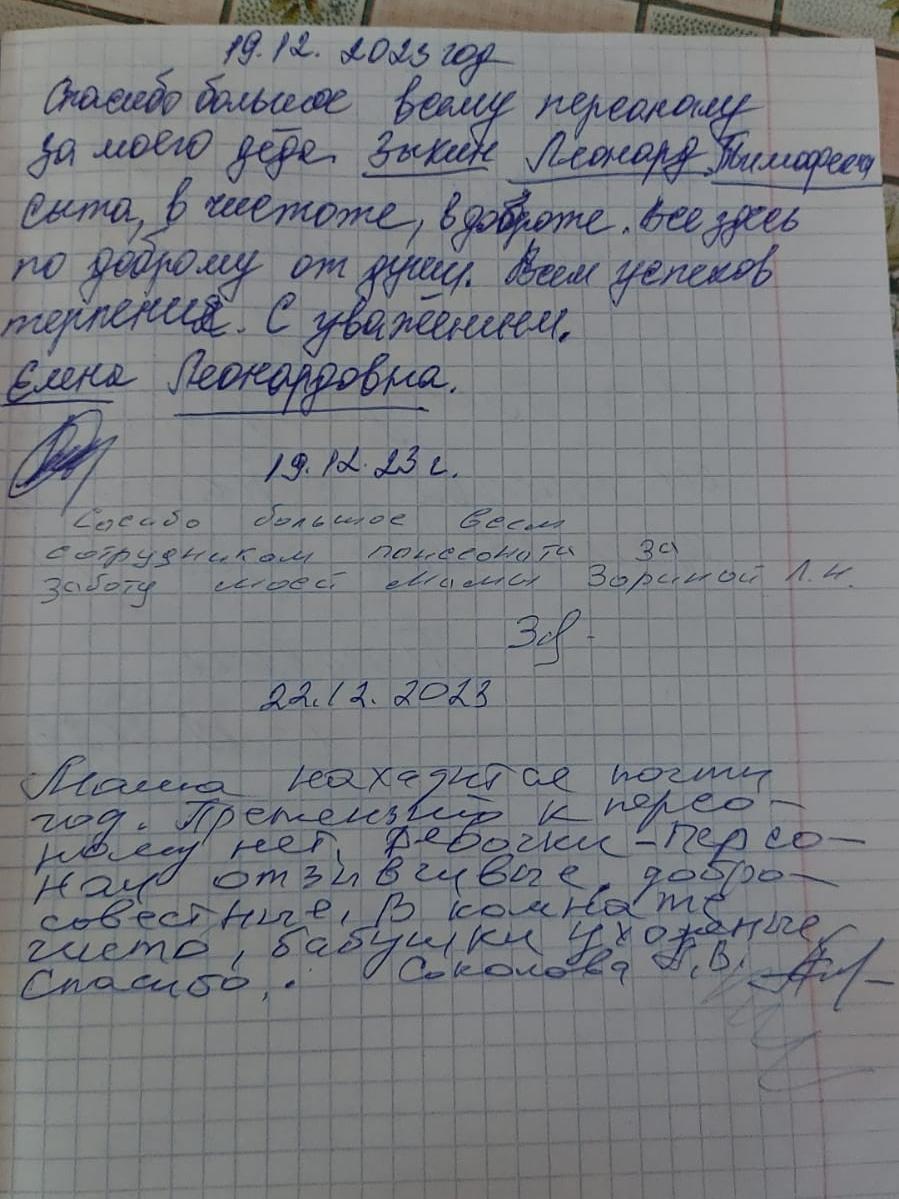 19.12. 2023 год
Спасибо большое всему персоналу
за моего деда. Зыкин Леонард Тимофеевич
сыта, в чистоте, в доброте. Все здесь
по доброму от души. Всем успехов
терпения. С уважением.
Елена Леонардовна.
19.12.23 г.
Спасибо большое всем
сотрудникам пансеоната за
заботу моей мамы Зориной Л.Н.
22.12.2023
Мама находится почти
год. Претензий к персо-
налу нет, девочки-персо-
нал отзывчивые, добро-
совестные, В комнате
чисто, бабушки ухоженые
Спасибо. Соколова Л.В.